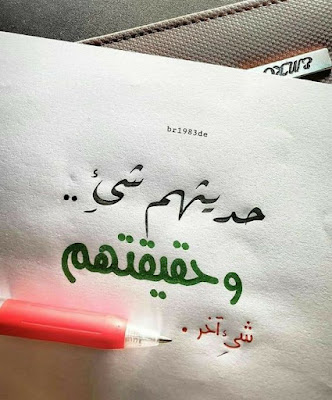 br1983de
حديثهم شيءٌ ..
وحقيقتهم
شيء آخر .